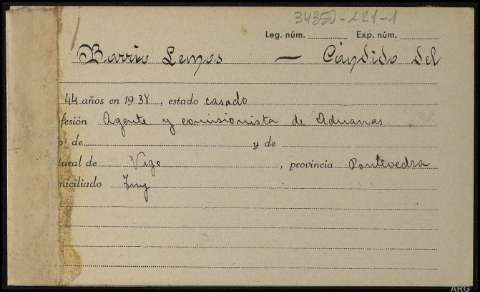 34350-221-1
Leg. núm. Exp. núm.
Barrio Lemos — Cándido del
44 años en 1937, estado casado
fesión Agente y comisionista de Aduanas
de y de
tural de Vigo, provincia Pontevedra
miciliado
ARG